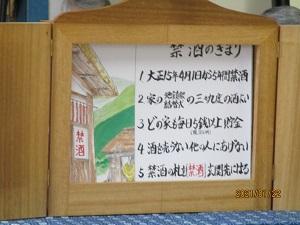 禁酒のきまり
1 大正15年4月1日から5年間禁酒
2 家の の三々九度の酒よい
3 どの家も毎日5銭以上貯金
4 酒を売らない他の人にあげない
5 禁酒の札 禁酒 玄関先にはる
禁酒
2021/01/22